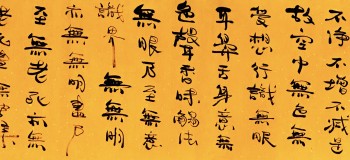 不淨不增不減是
故空中無色無
受想行識無眼
耳鼻舌身意無
色聲香味觸法
無眼乃至無意
識界無無明
亦無無明盡乃
至無老死亦無